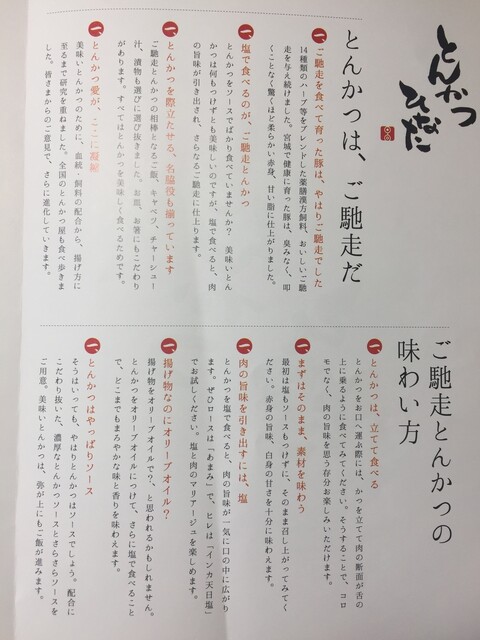 とんかつ
ひなた
とんかつは、ご馳走だ
一、ご馳走を食べて育った豚は、やはりご馳走でした
14種類のハーブ等をブレンドした薬膳漢方飼料、おいしいご馳
走を与え続けました。宮城で健康に育った豚は、臭みなく、叩
くことなく驚くほど柔らかい赤身、甘い脂に仕上がりました。
一、塩で食べるのが、ご馳走とんかつ
とんかつをソースでばかり食べていませんか？ 美味いとん
かつは何もつけずとも美味しいのですが、塩で食べると、肉
の旨味が引き出され、さらなるご馳走に仕上ります。
一、とんかつを際立たせる、名脇役も揃っています
ご馳走とんかつの相棒となるご飯、キャベツ、チャーシュー
汁、漬物も選びに選び抜きました。お皿、お箸にもこだわり
があります。すべてはとんかつを美味しく食べるためです。
一、とんかつ愛が、ここに凝縮
美味いとんかつのために、血統・飼料の配合から、揚げ方に
至るまで研究を重ねました。全国のとんかつ屋も食べ歩きま
した。皆さまからのご意見で、さらに進化していきます。
ご馳走とんかつの
味わい方
一、とんかつは、立てて食べる
とんかつをお口へ運ぶ際には、かつを立てて肉の断面が舌の
上に乗るように食べてみてください。そうすることで、コロ
モでなく、肉の旨味を思う存分お楽しみいただけます。
一、まずはそのまま、素材を味わう
最初は塩もソースもつけずに、そのまま召し上がってみてく
ださい。赤身の旨味、白身の甘さを十分に味わえます。
一、肉の旨味を引き出すには、塩
とんかつを塩で食べると、肉の旨味が一気に口の中に広がり
ます。ぜひロースは「わまみ」で、ヒレは「インカ天日塩」
でお試しください。塩と肉のマリアージュを楽しめます。
一、揚げ物なのにオリーブオイル？
揚げ物をオリーブオイルで？、と思われるかもしれません。
とんかつをオリーブオイルにつけて、さらに塩で食べること
で、どこまでもまろやかな味と香りを味わえます。
一、とんかつはやっぱりソース
そうはいっても、やはりとんかつはソースでしょう。配合に
こだわり抜いた、濃厚なとんかつソースとさらさらソースを
ご用意。美味いとんかつは、弥が上にもご飯が進みます。